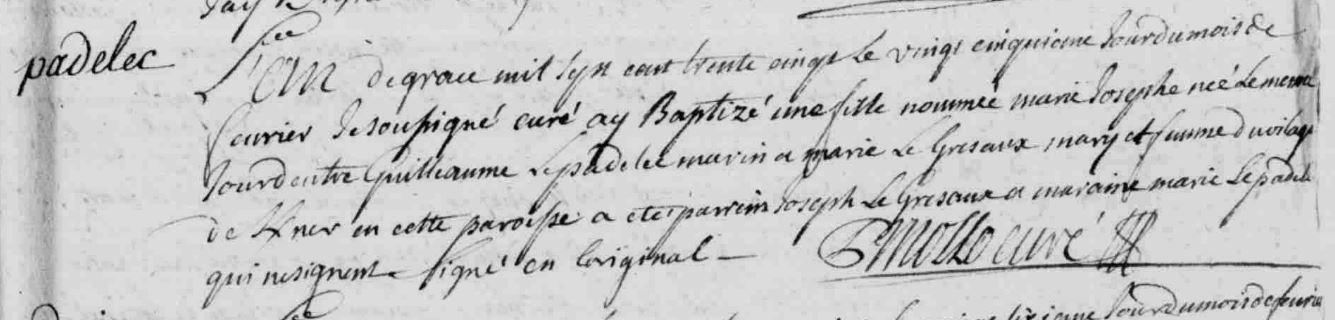 padelec
L'an de grace mil sept cent trente cinqt le vingt cinquieme Jour du mois de
fevrier Je soussigné curé ay Baptizé une fille nommée marie Josephe née Le meme
Jour d'entre Guilleaume Le padelec marin et marie Le Gresaux mary et femme du vilage
de en cette paroisse a eté parrein Joseph Le Gresaux et maraine marie Le padele
qui ne signent signé en l'original
curé
Jour du mois de fevrier